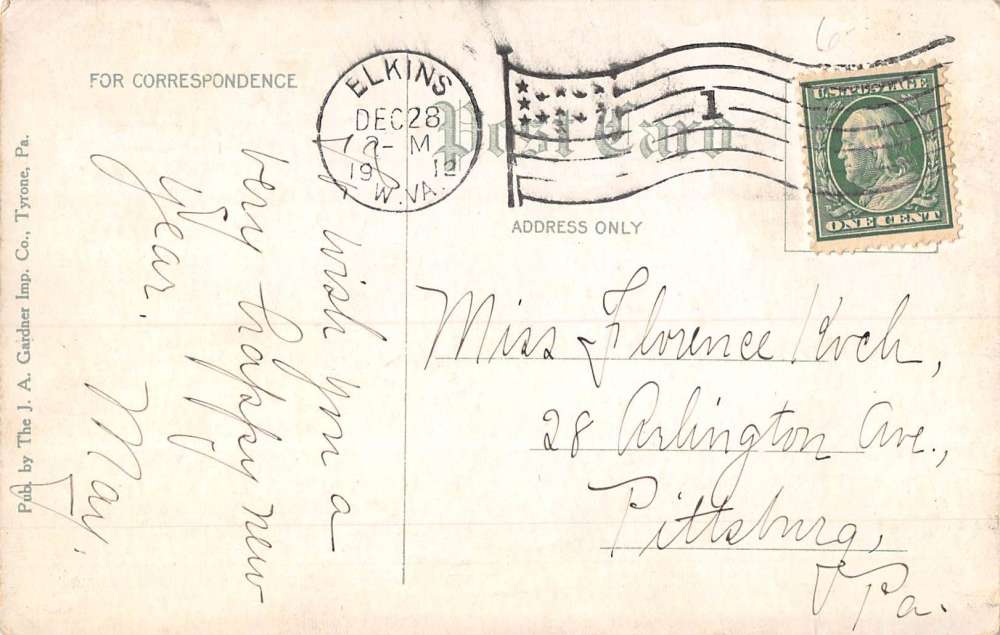 FOR CORRESPONDENCE
Post Card
ADDRESS ONLY
ELKINS
DEC 28
M
1912
W. VA.
1
U.S. POSTAGE
ONE CENT
I wish you a
very happy new
year.
May.
Miss Florence Koch,
28 Arlington Ave.,
Pittsburg,
Pa.
Pub. by The J. A. Gardner Imp. Co., Tyrone, Pa.